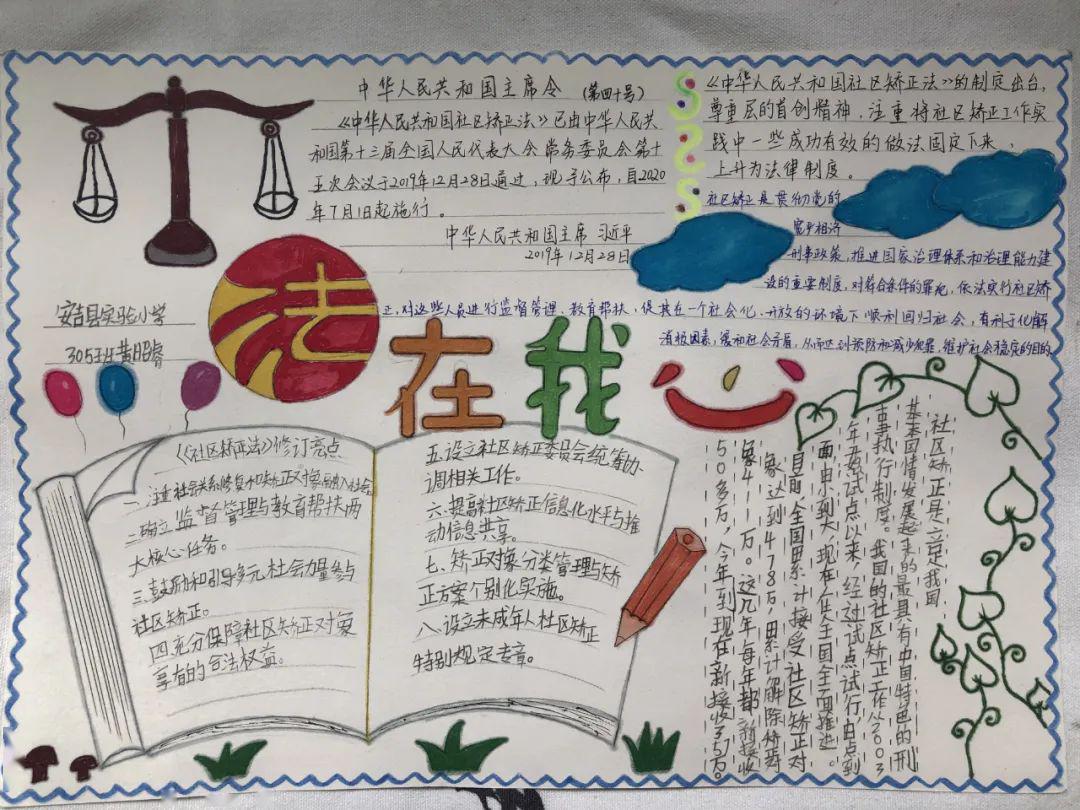 中华人民共和国主席令
(第四十号)
《中华人民共和国社区矫正法》已由中华人民共
和国第十三届全国人民代表大会常务委员会第十
五次会议于2019年12月28日通过，现予公布，自2020
年7月1日起施行。
中华人民共和国主席 习近平
2019年12月28日
《中华人民共和国社区矫正法》的制定出台，
尊重层的首创精神，注重将社区矫正工作实
践中一些成功有效的做法固定下来，
上升为法律制度。
社区矫正是贯彻党的
宽严相济
刑事政策，推进国家治理体系和治理能力建
设的重要制度，对符合条件的罪犯，依法实行社区矫
正，对这些人员进行监督管理、教育帮扶，促其在一个社会化、开放的环境下顺利回归社会，有利于化解
消极因素，缓和社会矛盾，从而达到预防和减少犯罪，维护社会稳定的目的
安吉县实验小学
305班黄昭睿
法在我心
《社区矫正法》修订亮点
一、注重社会关系修复和矫正对象融入社会。
二、确立监督管理与教育帮扶两
大核心任务。
三、鼓励和引导多元社会力量参与
社区矫正。
四、充分保障社区矫正对象
享有的合法权益。
五、设立社区矫正委员会统筹协
调相关工作。
六、提高社区矫正信息化水平与推
动信息共享。
七、矫正对象分类管理与矫
正方案个别化实施。
八、设立未成年人社区矫正
特别规定专章。
社区矫正是立足我国
基本国情发展起来的最具有中国特色的刑
事执行制度。我国的社区矫正工作从2003
年开始试点以来，经过试点试行，由点到
面，由小到大，现在全国全面推进。
目前，全国累计接受社区矫正对
象达到478万，累计解除矫正对
象411万。这几年每年都新接收
50多万，今年到现在新接收35万。